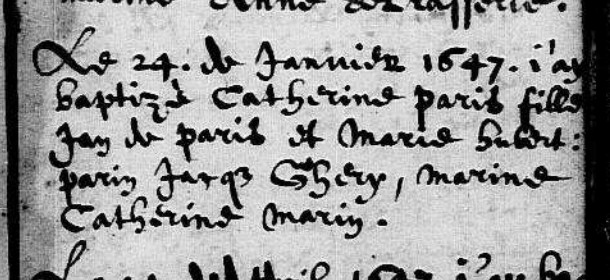 Le 24. de Januier 1647. i'ay
baptizé Catherine paris fille
Jan de paris et Marie hubert:
parin Jacq Ghery, marine
Catherine Marin.